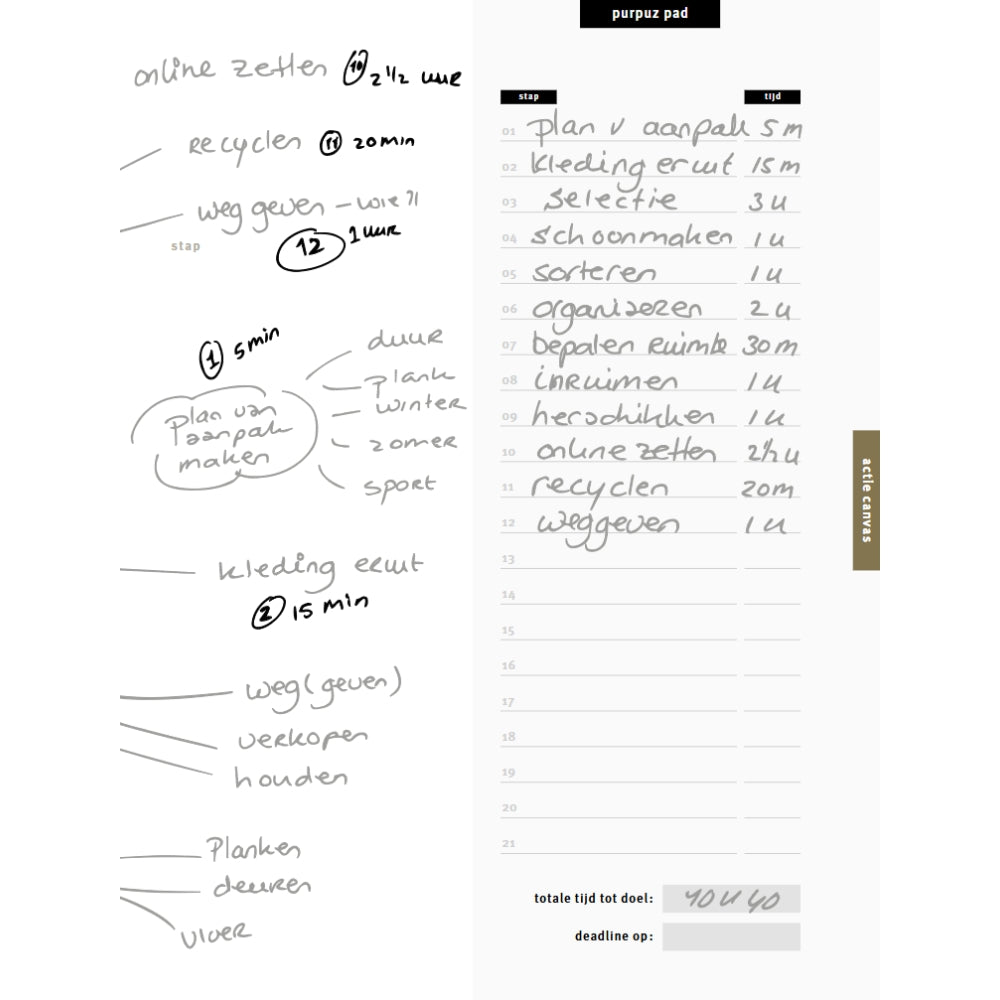 purpuz pad
online zetten 10 2 1/2 uur
recyclen 11 20 min
weg geven - wie?!
stap
12 1 uur
1 5 min
duur
plank
plan van
aanpak
maken
winter
zomer
sport
kleding eruit
2 15 min
weg(geven)
verkopen
houden
Planken
deuren
vloer
stap tijd
01 plan v aanpak 5 m
02 kleding eruit 15 m
03 selectie 3 u
04 schoonmaken 1 u
05 sorteren 1 u
06 organiseren 2 u
07 bepalen ruimte 30 m
08 inruimen 1 u
09 herschikken 1 u
10 online zetten 2 1/2 u
11 recyclen 20 m
12 weggeven 1 u
13
14
15
16
17
18
19
20
21
totale tijd tot doel: 10 u 40
deadline op:
actie canvas